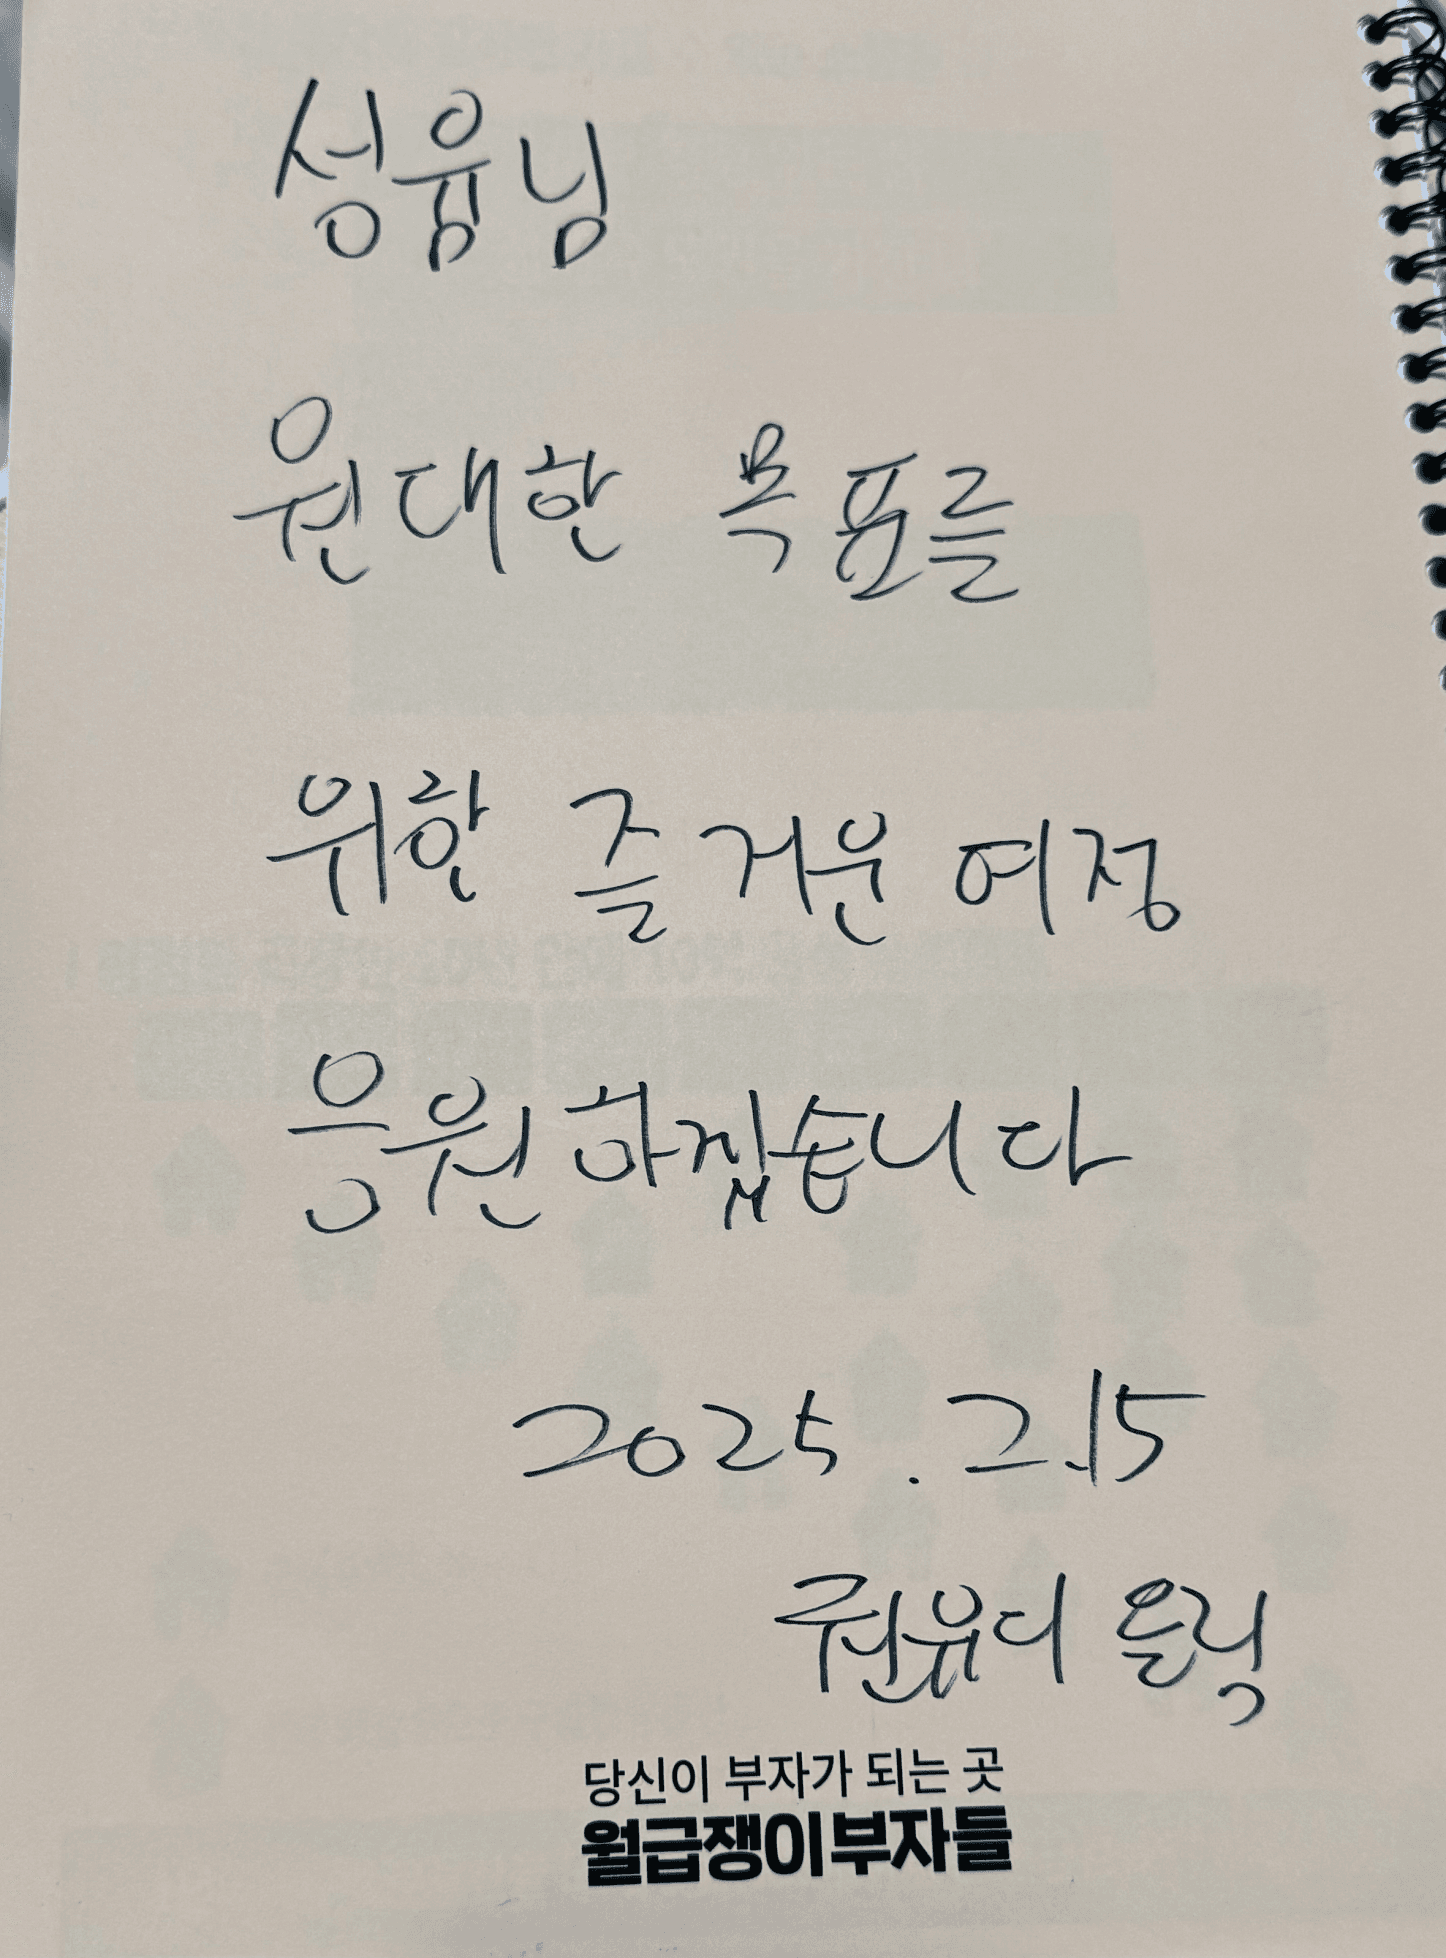 성윰님
원대한 목표를
위한 즐거운 여정
응원하겠습니다
2025. 2.15
퀀윰디 올림
당신이 부자가 되는 곳
월급쟁이부자들